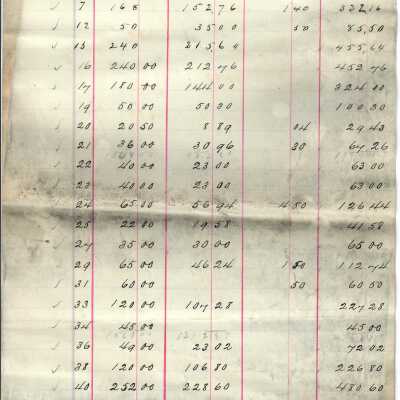 ✓ 7 168 152 76 1 40 322 16
✓ 12 50 35 00 50 85,50
✓ 15 240 215 64 455,64
✓ 16 240 00 212 76 452 76
✓ 17 180 00 144 00 324 00
✓ 19 50 00 50 30 100 30
✓ 20 20 50 8 89 04 29 43
✓ 21 36 00 30 96 30 67 26
✓ 22 40 00 23 00 63 00
✓ 23 40 00 23 00 63 00
✓ 24 65 00 56 94 4 50 126 44
✓ 25 22 00 19 58 41 58
✓ 27 35 00 30 00 65 00
✓ 29 65 00 46 24 1 50 112 74
✓ 31 60 00 50 60 50
✓ 33 120 00 107 28 227 28
✓ 34 45 00 45 00
✓ 36 49 00 23 02 72 02
✓ 38 120 00 106 80 226 80
✓ 40 252 00 228 60 480 60